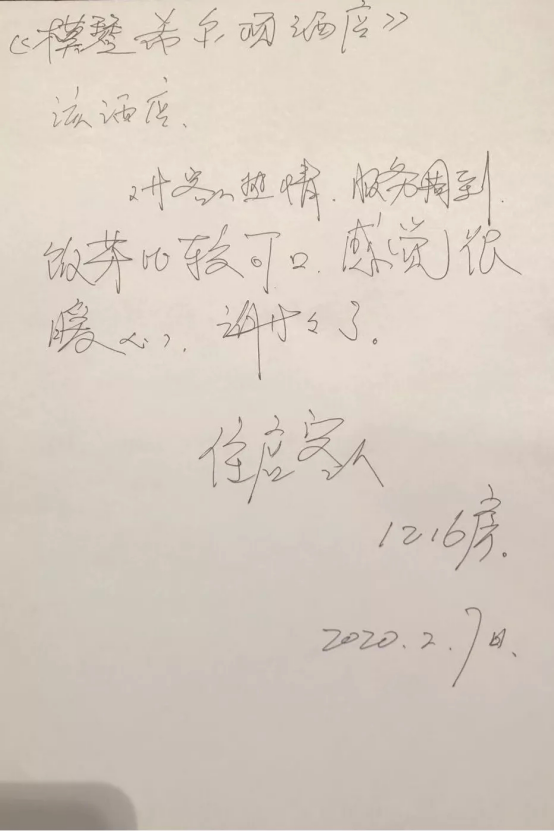 《模琴希尔顿酒店》
该酒店、
对客人热情、服务周到、
饭菜比较可口、感觉很
暖心、谢々了。
住店客人
1216房。
2020.2.7日、